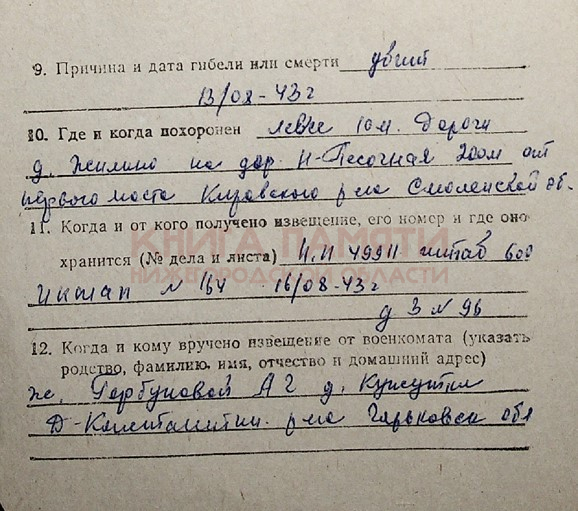 9. Причина и дата гибели или смерти убит
13/08-43 г
10. Где и когда похоронен левее 10 м. дороги
д. Жилино на дор. Н-Песочная 200 м от
первого моста Кировского р-на Смоленской об.
11. Когда и от кого получено извещение, его номер и где оно
КНИГА ПАМЯТИ
хранится (№ дела и листа) штаб
НИЖЕГОРОДСКОЙ ОБЛАСТИ
N 164 16/08-43 г
д 3 N 96
12. Когда и кому вручено извещение от военкомата (указать
родство, фамилию, имя, отчество и домашний адрес)
же. Горбуновой А Г д.
Д-Константин. р-на Горьковск обл